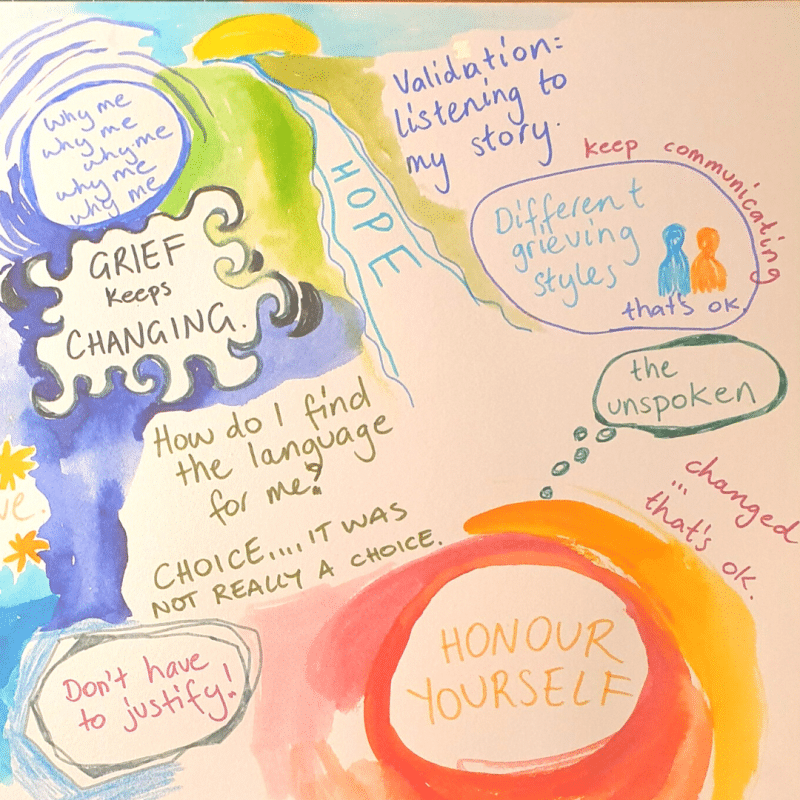 why me
why me
why me
why me
why me
GRIEF
keeps
CHANGING.
HOPE
Validation:
listening to
my story.
keep communicating
Different
grieving
styles
that's ok.
the
unspoken
How do I find
the language
for me?
CHOICE.... IT WAS
NOT REALLY A CHOICE.
changed
...
that's ok.
Don't have
to justify!
HONOUR
YOURSELF